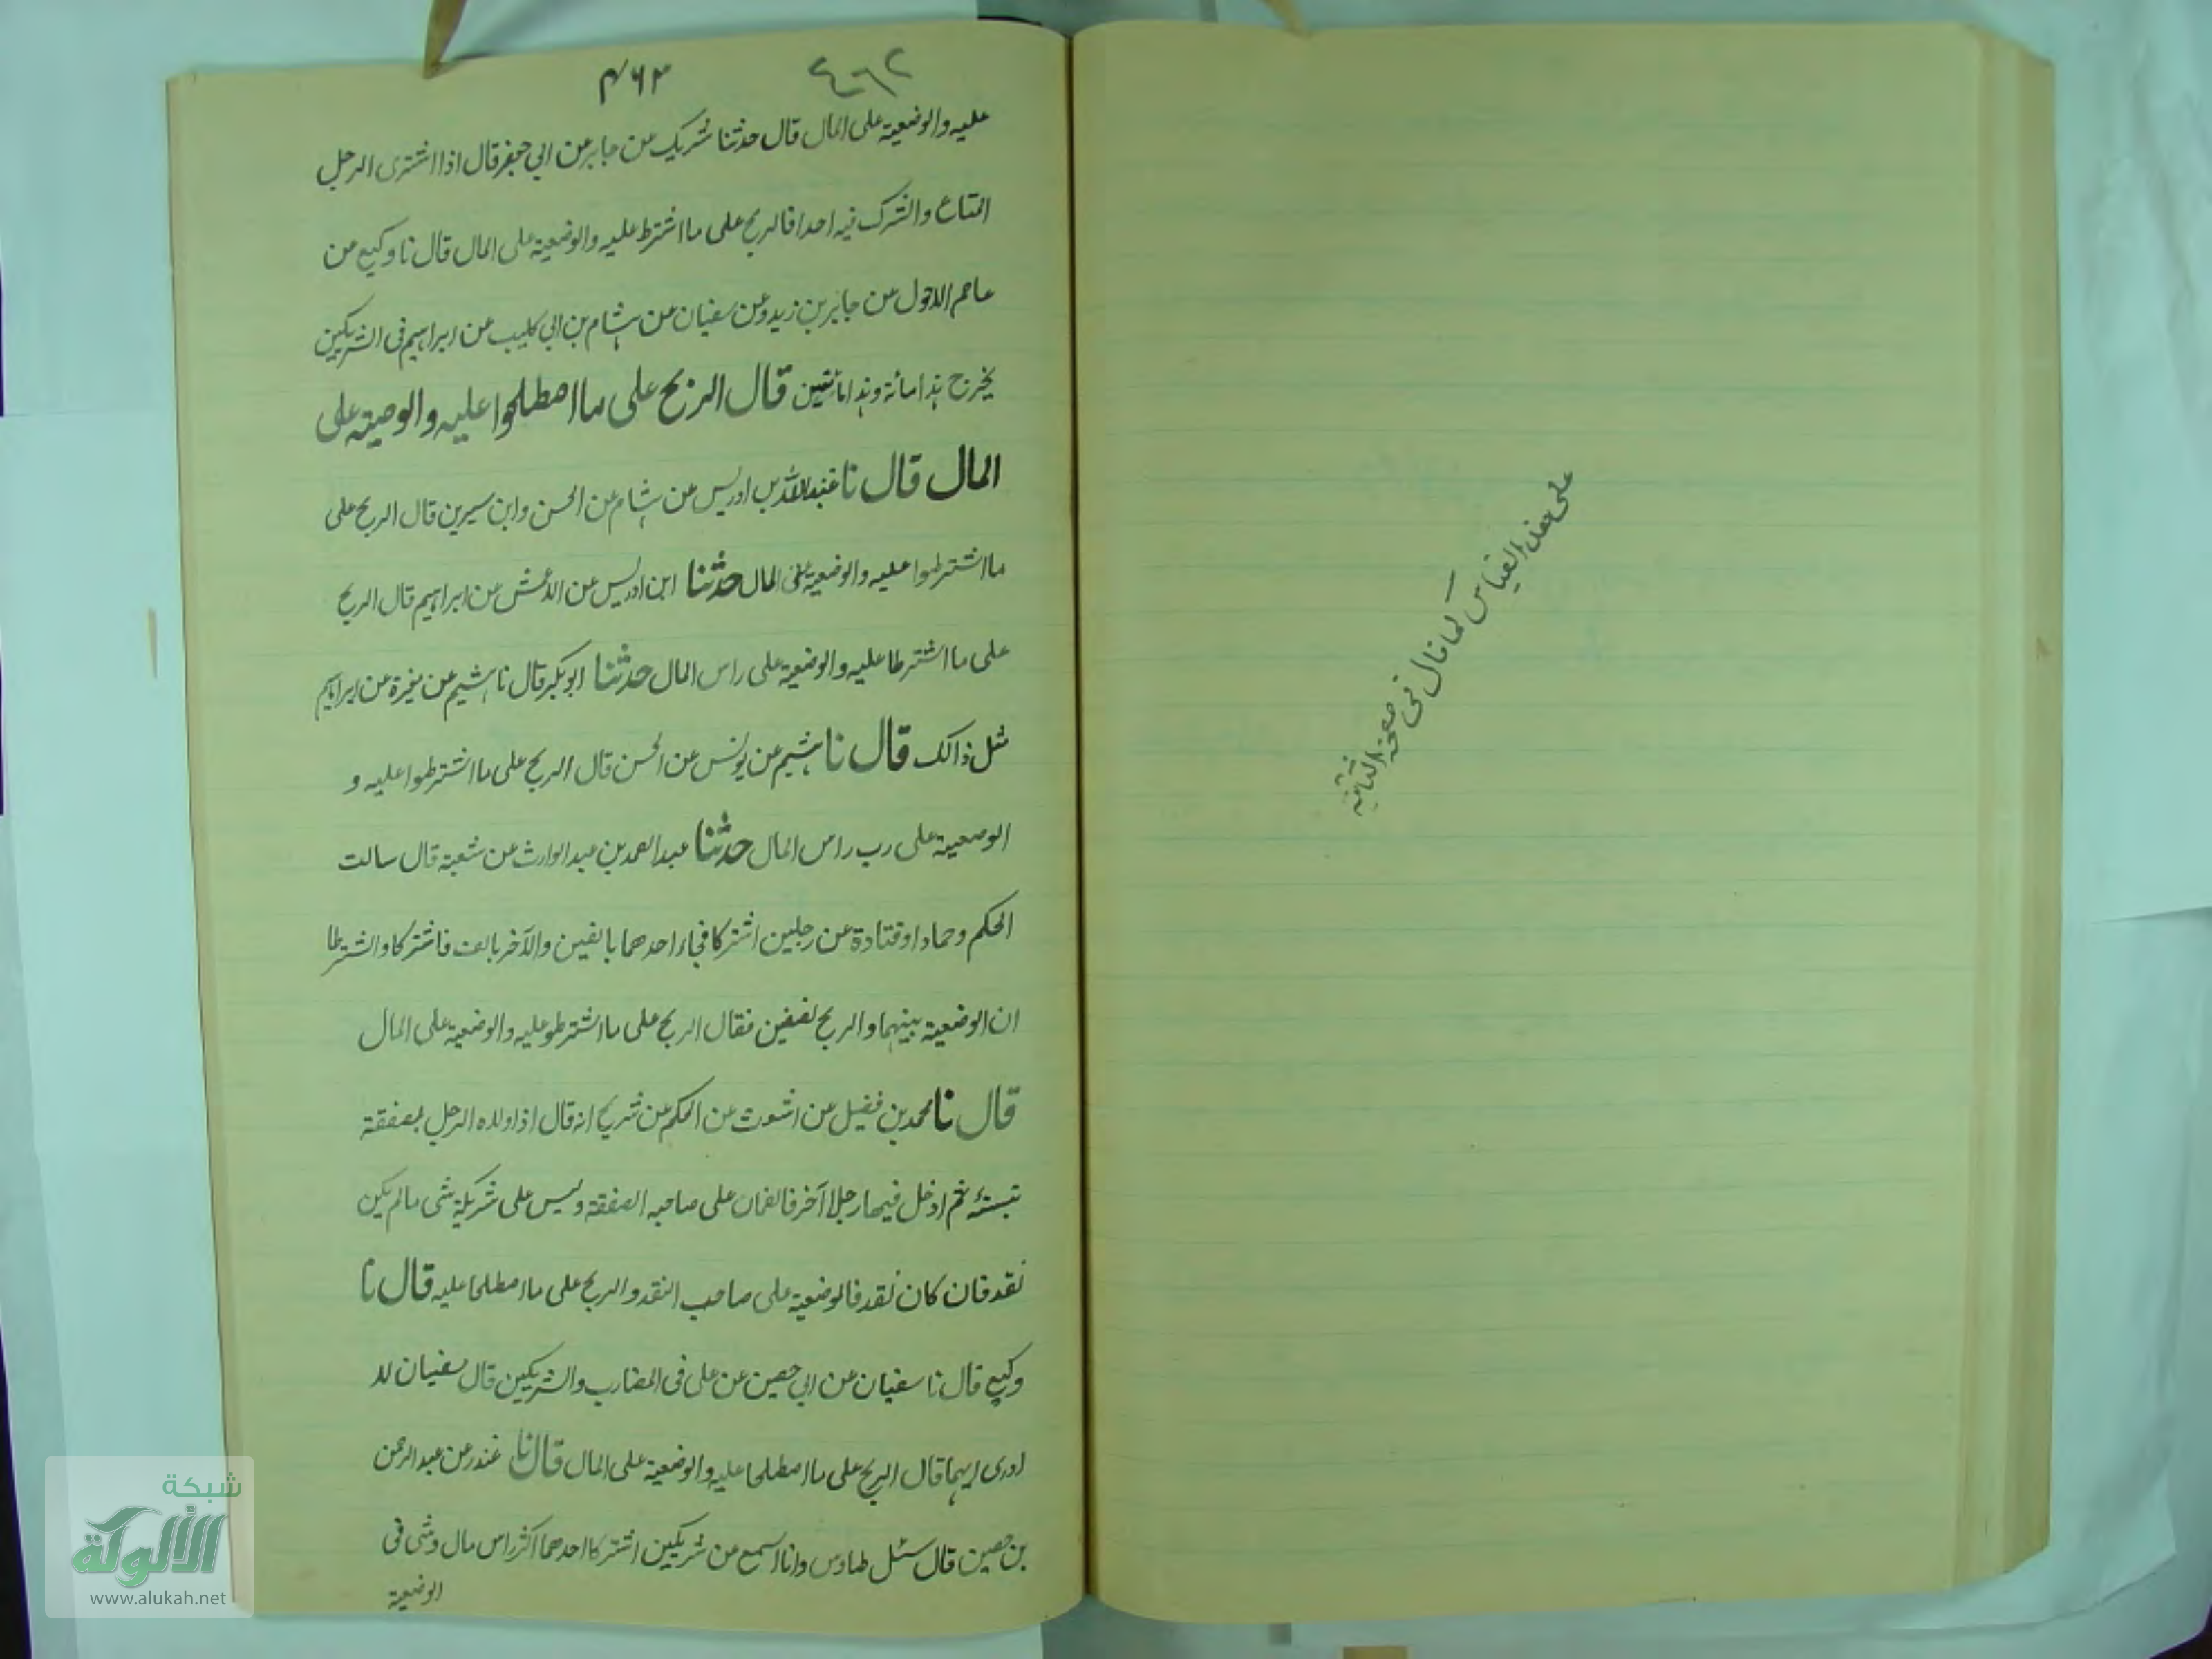 على هذا القياس كما قال فى صفحة الثانية
٤٦٢
۴۶۳
عليه والوضعية على المال قال حدثنا شريك عن جابر عن ابي جعفر قال اذا اشترى الرجل
المتاع واشرك فيه احدا فالربح على ما اشترط عليه والوضعية على المال قال نا وكيع عن
عاصم الاحول عن جابر بن زيد وعن سفيان عن هشام بن ابي كليب عن ابراهيم فى الشريكين
يخرج هذا مائة وهذا مائتين قال الربح على ما اصطلحوا عليه والوصيته على
المال قال نا عبد الله بن ادريس عن هشام عن الحسن وابن سيرين قال الربح على
ما اشترطوا عليه والوضعية على المال حدثنا ابن ادريس عن الاعمش عن ابراهيم قال الربح
على ما اشترطا عليه والوضعية على راس المال حدثنا ابو بكر قال نا هشيم عن مغيرة عن ابراهيم
مثل ذالك قال نا هشيم عن يونس عن الحسن قال الربح على ما اشترطوا عليه و
الوصعية على رب راس المال حدثنا عبد الصمد بن عبد الوارث عن شعبة قال سالت
الحكم وحمادا وقتادة عن رجلين اشتركا فجاء احدهما بالفين والآخر بالف فاشتركا واشترطا
ان الوضعية بينهما والربح نصفين فقال الربح على ما اشترطو عليه والوضعية على المال
قال نا محمد بن فضيل عن اشعث عن الحكم عن شريح انه قال اذا ولاه الرجل بصفقة
ثم ادخل فيها رجلا آخر فالضمان على صاحبه الصفقة وليس على شريكة شى ما لم يكن
نقد فان كان نقد فالوضعية على صاحب النقد والربح على ما اصطلحا عليه قال نا
وكيع قال نا سفيان عن ابي حصين عن على فى المضارب والشريكين قال سفيان لا
ادرى ايهما قال الربح على ما اصطلحا عليه والوضعية على المال قال نا غندر عن عبد الرحمن
بن حصين قال سئل طاوس وانا اسمع عن شريكين اشتركا احدهما اكثر راس مال وشى فى
الوضعية
شبكة
الألوكة
www.alukah.net